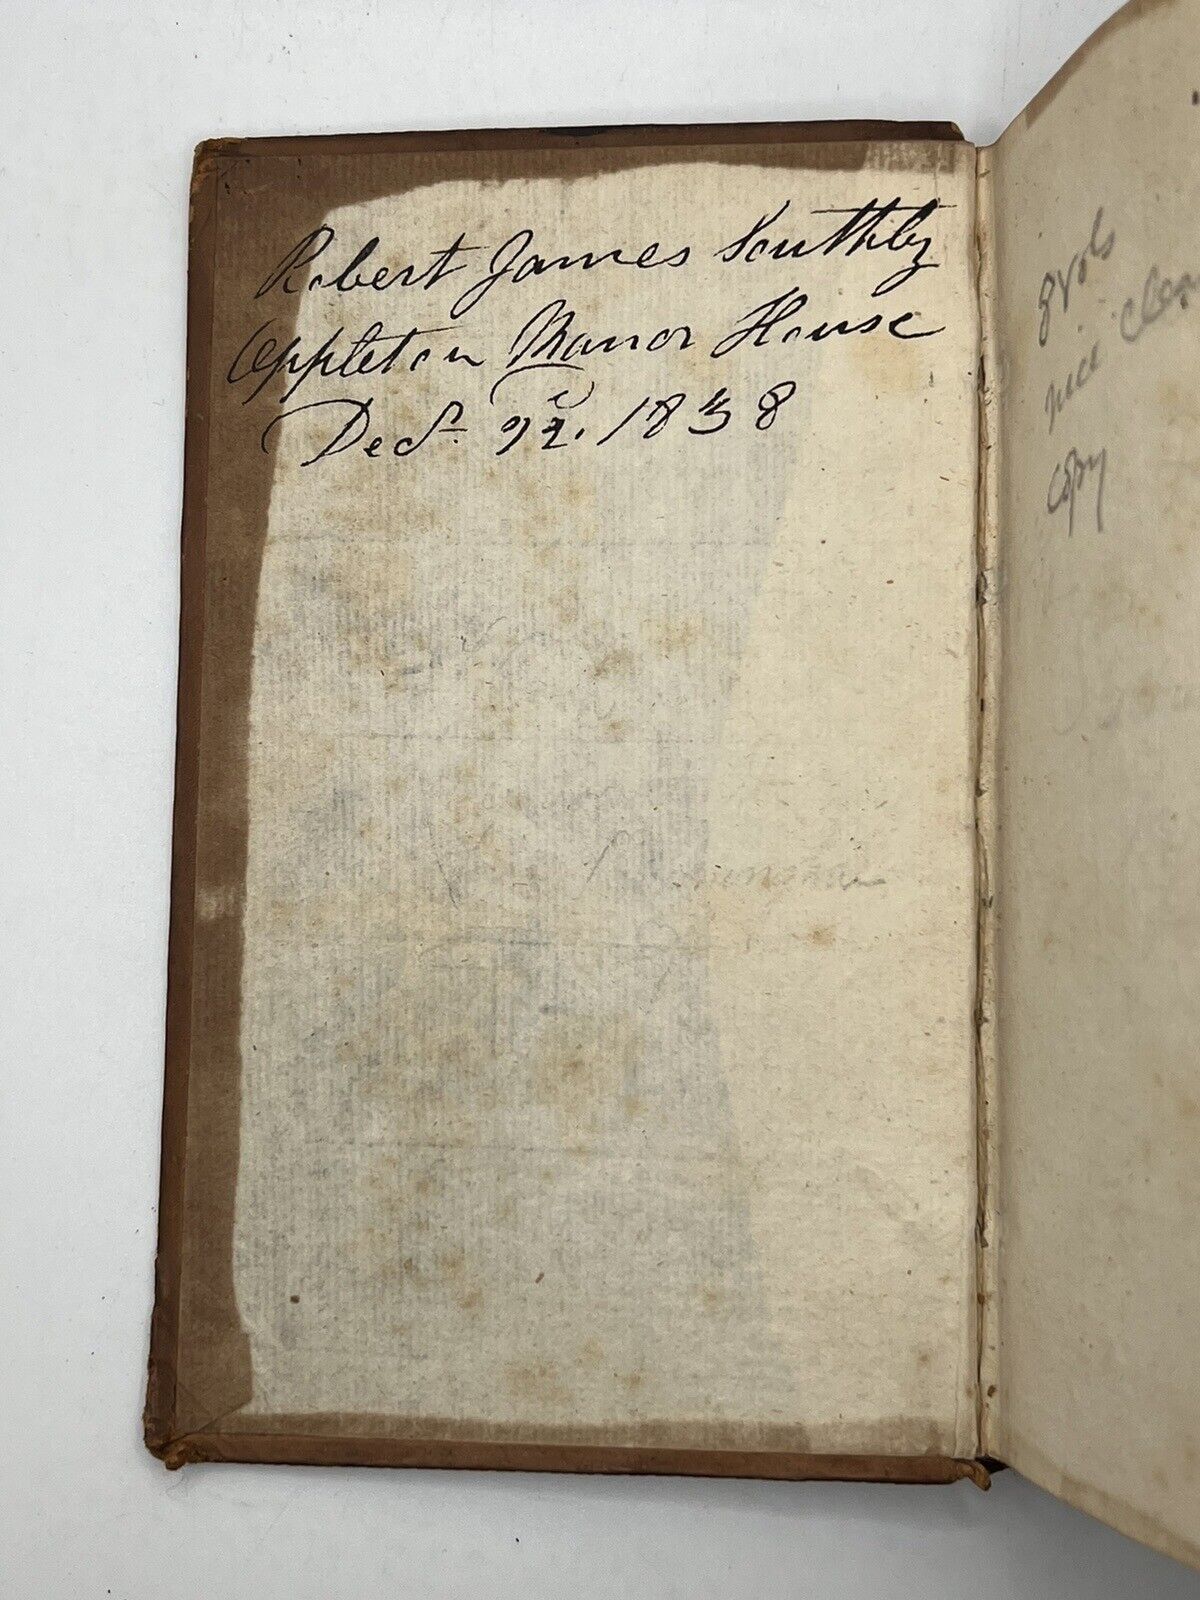 Robert James Southby
Appleton Manor House
Decr. 1838
vols
nice clean
copy